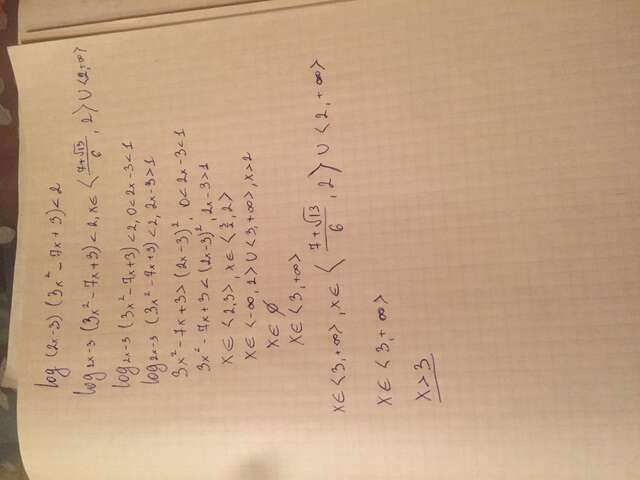 log (2x-3) (3x² - 7x + 3) < 2
log 2x-3 (3x² - 7x + 3) < 2, x ∈ ⟨(7+√13)/6, 2⟩ ∪ ⟨2, +∞⟩
log 2x-3 (3x² - 7x + 3) < 2, 0 < 2x - 3 < 1
log 2x-3 (3x² - 7x + 3) < 2, 2x - 3 > 1
3x² - 7x + 3 > (2x - 3)², 0 < 2x - 3 < 1
3x² - 7x + 3 < (2x - 3)², 2x - 3 > 1
x ∈ ⟨2, 3⟩, x ∈ ⟨3/2, 2⟩
x ∈ ⟨-∞, 2⟩ ∪ ⟨3, +∞⟩, x > 2
x ∈ ∅
x ∈ ⟨3, +∞⟩
x ∈ ⟨3, +∞⟩, x ∈ ⟨(7+√13)/6, 2⟩ ∪ ⟨2, +∞⟩
x ∈ ⟨3, +∞⟩
x > 3